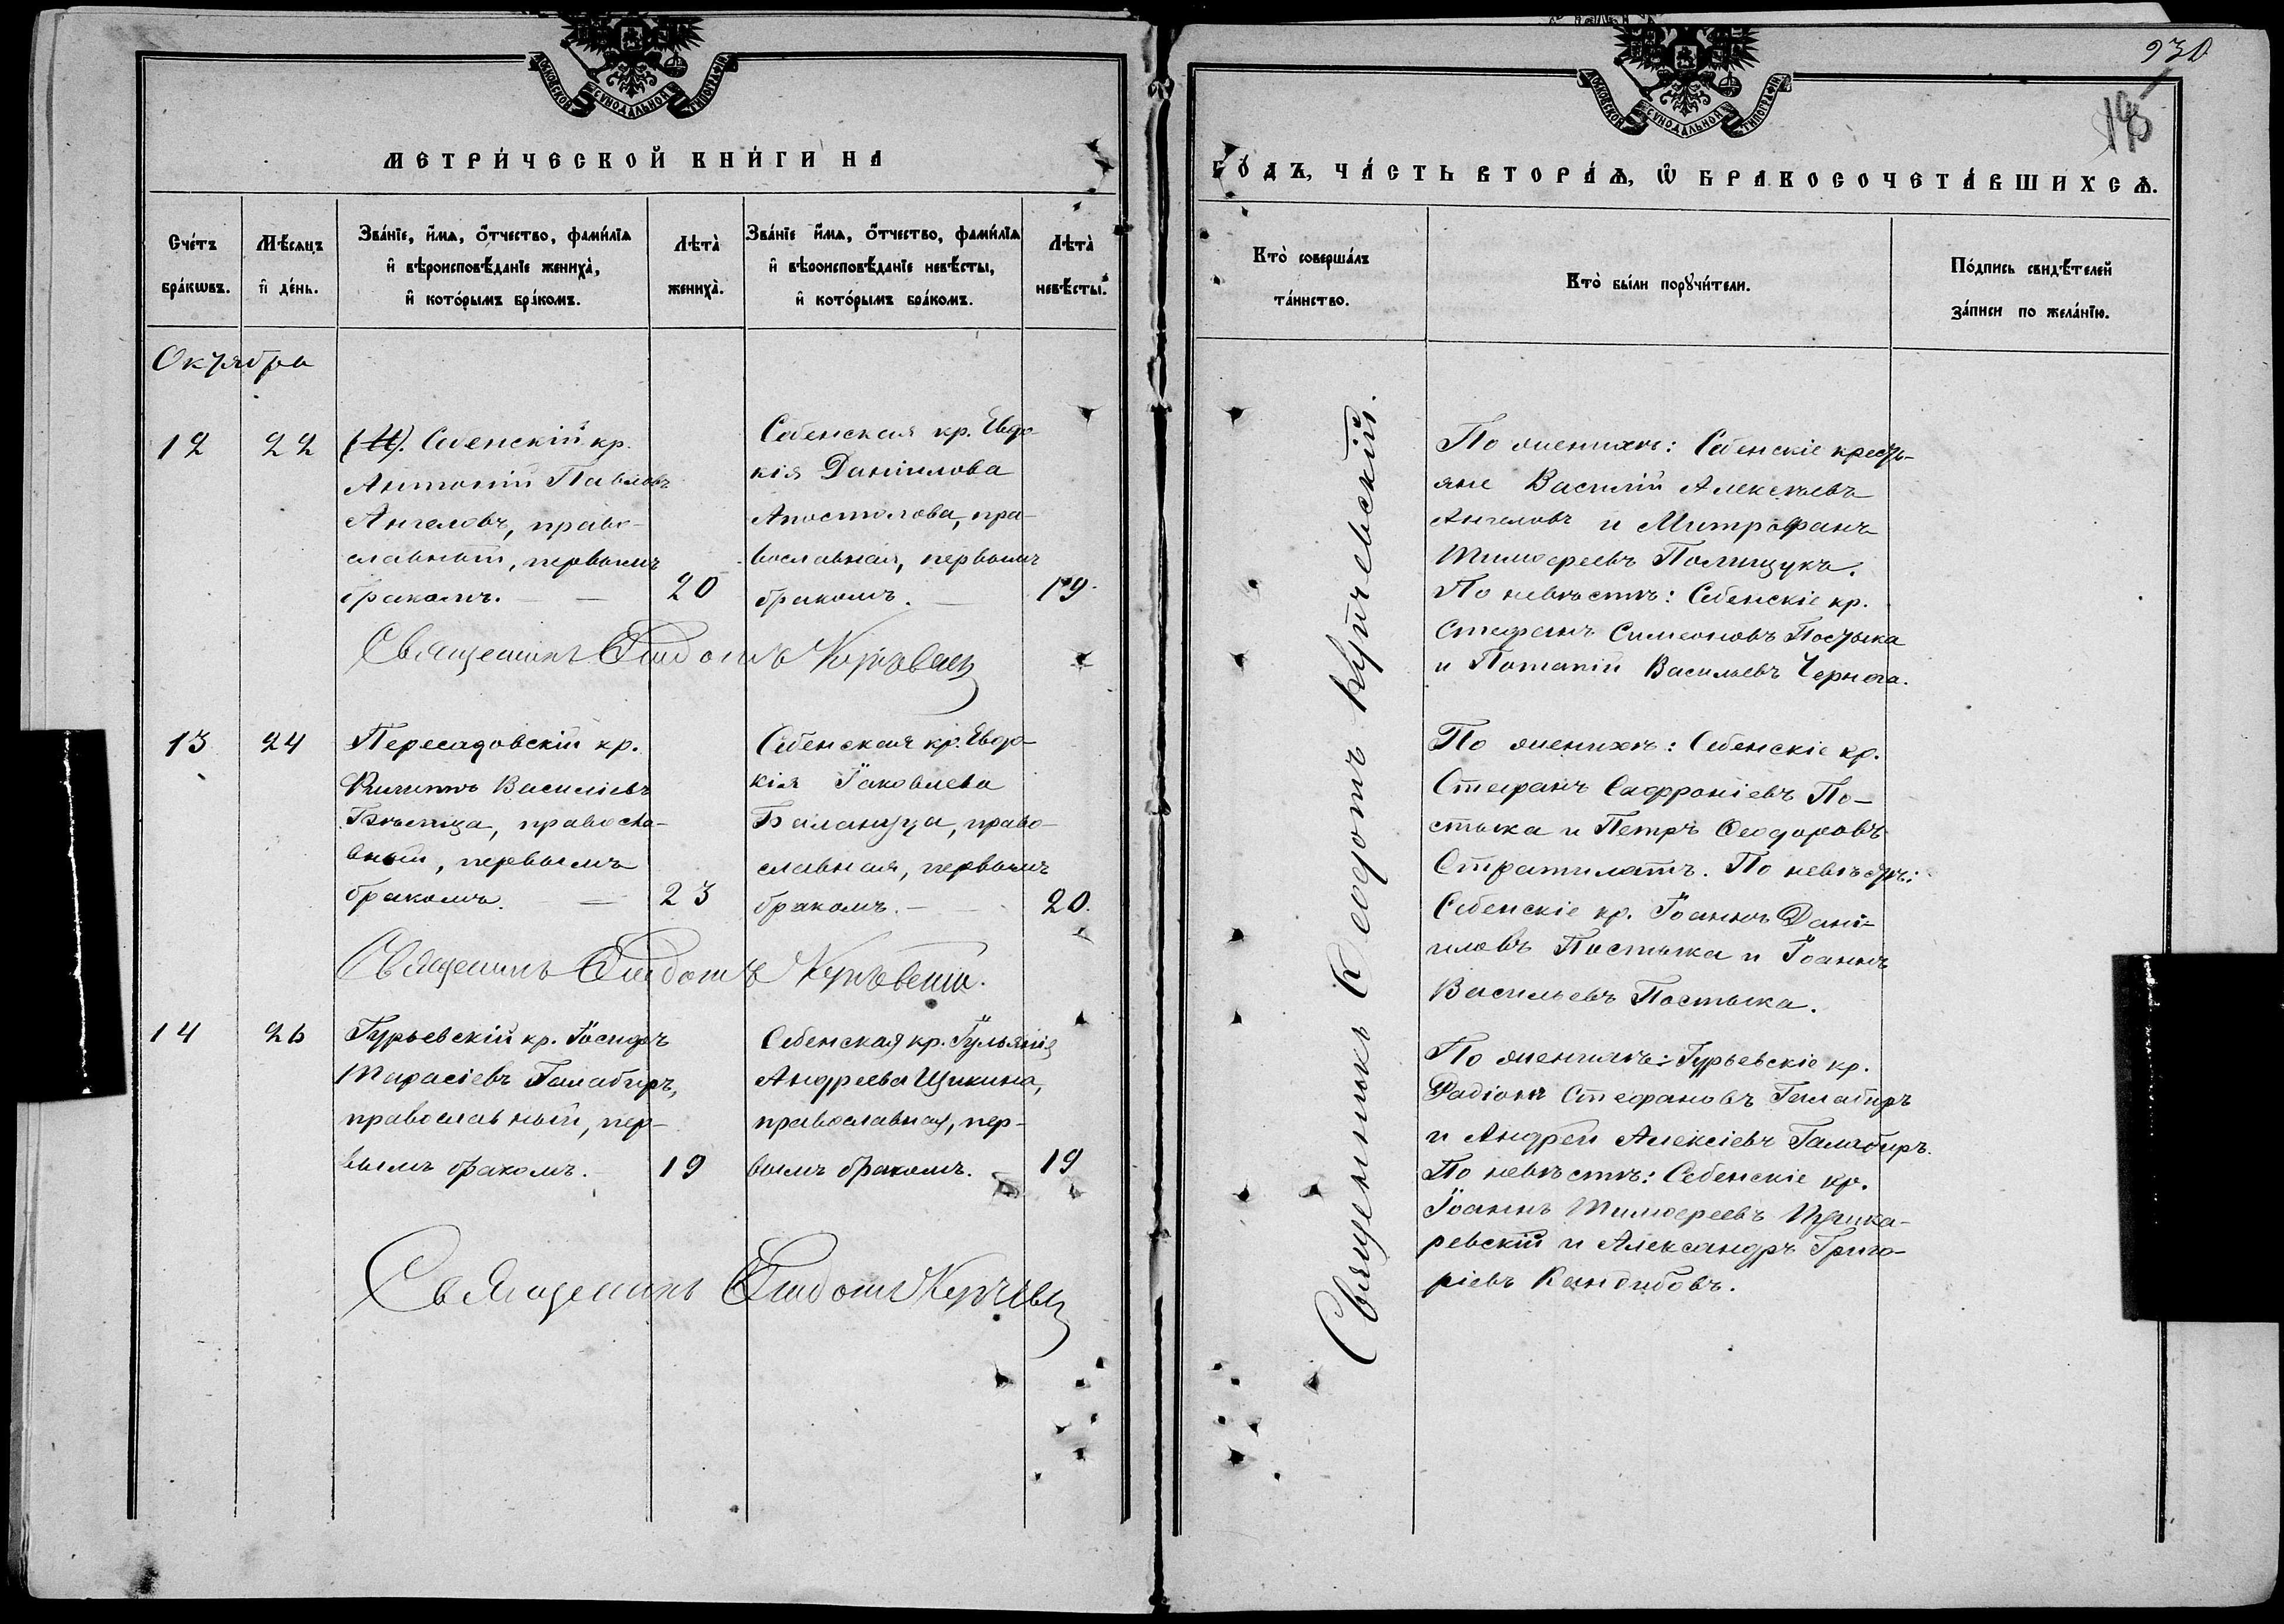 МОСКОВСКОЙ СѴНОДАЛЬНОЙ ТИПОГРАФІИ
МЕТРИ́ЧЕСКОЙ КНИ́ГИ НА
Сче́тъ бра́кѡвъ.
Мѣ́сяцъ и҆ де́нь.
Зва́нїе, и҆́мѧ, ѻ҆́тчество, фами́лїѧ
и҆ вѣроисповѣ́данїе жениха̀,
и҆ кото́рымъ бра́комъ.
Лѣта̀ жениха̀.
Зва́нїе и҆́мѧ, ѻ҆́тчество, фами́лїѧ
и҆ вѣроисповѣ́данїе невѣ́сты,
и҆ кото́рымъ бра́комъ.
Лѣта̀ невѣ́сты.
Октября
12
22
Себенскій кр.
Антоній Павловъ
Ангеловъ, право-
славный, первымъ
бракомъ.
20
Себенская кр. Евдо-
кія Даніилова
Апостолова, пра-
вославная, первымъ
бракомъ.
19.
Священникъ Ѳеодотъ
13
24
Пересадовскій кр.
Филиппъ Василіевъ
православ-
вный, первымъ
бракомъ.
23
Себенская кр. Евдо-
кія Іаковлева
Баланута, право-
славная, первымъ
бракомъ.
20.
Священникъ Ѳеодотъ
14
26
Гурьевскій кр. Іосифъ
Тарасіевъ Галабиръ,
православный, пер-
вымъ бракомъ.
19
Себенская кр. Іуліанія
Андреева Щукина,
православная, пер-
вымъ бракомъ.
19
Священникъ Ѳеодотъ
930
195
МОСКОВСКОЙ СѴНОДАЛЬНОЙ ТИПОГРАФІИ
ГО́ДЪ, ЧА́СТЬ ВТОРА́Ѧ, Ѡ҆ БРАКОСОЧЕТА́ВШИХСѦ.
Кто̀ соверша́лъ
та́инство.
Кто̀ бы́ли порꙋчи́тели.
По́дпись свидѣ́телей
за́писи по жела́нїю.
Священникъ Ѳеодотъ Купчевскій.
По женихѣ: Себенскіе кресть-
яне Василій Алексѣевъ
Ангеловъ и Митрофанъ
Тимоѳеевъ Полищукъ.
По невѣстѣ: Себенскіе кр.
Стефанъ Симеоновъ Постыка
и Потапій Васильевъ Чернега.
По женихѣ: Себенскіе кр.
Стефанъ Сафроніевъ По-
стыка и Петръ Ѳеодоровъ
Стратилатъ. По невѣстѣ:
Себенскіе кр. Іоаннъ Дани-
иловъ Постыка и Іоаннъ
Васильевъ Постыка.
По женихѣ: Гурьевскіе кр.
Радіонъ Стефановъ Галабиръ
и Андрей Алексіевъ Галабиръ.
По невѣстѣ: Себенскіе кр.
Іоаннъ Тимоѳеевъ Пушка-
ревскій и Александръ Григо-
ріевъ Кандибовъ.